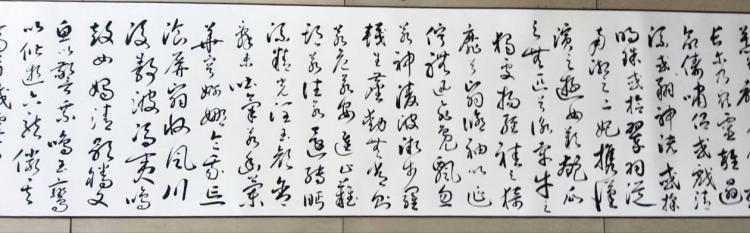 長爾乃衆靈雜遝
命儔嘯侶或戲清
流或翔神渚或採
明珠或拾翠羽從
南湘之二妃攜漢
濱之游女歎匏瓜
之無匹兮詠牽牛之
獨處揚輕袿之猗
靡兮翳修袖以延
佇體迅飛鳧飄忽
若神凌波微步羅
襪生塵動無常則
若危若安進止難
期若往若還轉眄
流精光潤玉顏含
辭未吐氣若幽蘭
華容婀娜令我忘
飡屏翳收風川
後靜波馮夷鳴
鼓女媧清歌騰文
魚以警乘鳴玉鸞
以偕逝六龍儼其